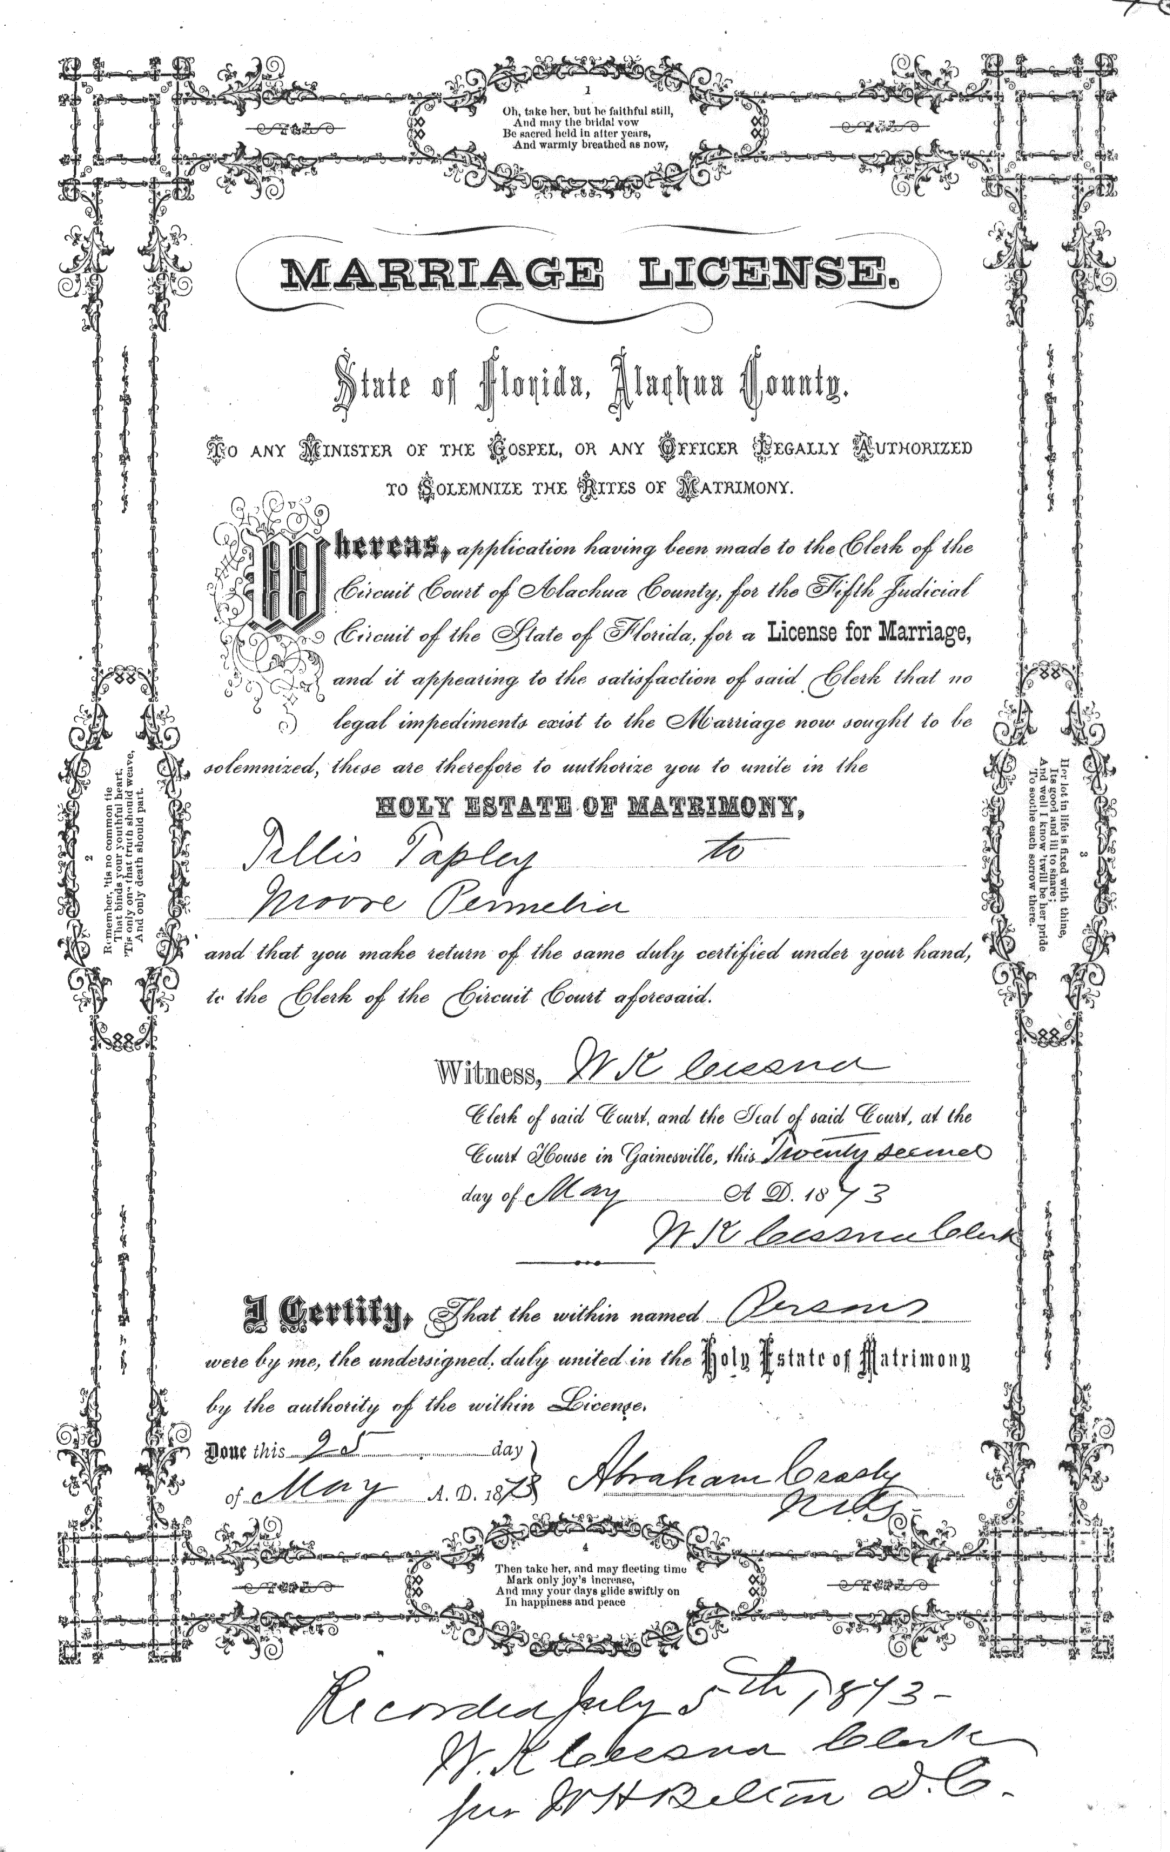 1
Oh, take her, but be faithful still,
And may the bridal vow
Be sacred held in after years,
And warmly breathed as now,
MARRIAGE LICENSE.
State of Florida, Alachua County.
TO ANY MINISTER OF THE GOSPEL, OR ANY OFFICER LEGALLY AUTHORIZED
TO SOLEMNIZE THE RITES OF MATRIMONY.
Whereas, application having been made to the Clerk of the
Circuit Court of Alachua County, for the Fifth Judicial
Circuit of the State of Florida, for a License for Marriage,
and it appearing to the satisfaction of said Clerk that no
legal impediments exist to the Marriage now sought to be
solemnized, these are therefore to authorize you to unite in the
HOLY ESTATE OF MATRIMONY,
Tillis Tapley to
Moore Permelia
and that you make return of the same duly certified under your hand,
to the Clerk of the Circuit Court aforesaid.
2
Remember, 'tis no common tie
That binds your youthful heart,
'Tis only one that truth should weave,
And only death should part.
3
Her lot in life is fixed with thine,
Its good and ill to share;
And well I know 'twill be her pride
To soothe each sorrow there.
Witness, W K Cessna
Clerk of said Court, and the Seal of said Court, at the
Court House in Gainesville, this Twenty second
day of May A D. 1873
W K Cessna Clerk
I Certify, That the within named Persons
were by me, the undersigned, duly united in the Holy Estate of Matrimony
by the authority of the within License.
Done this 25 day
of May A. D. 1873
Abraham Crosby
4
Then take her, and may fleeting time
Mark only joy's increase,
And may your days glide swiftly on
In happiness and peace
Recorded July 5th, 1873-
W. K Cessna Clerk
per W H Belton D. C.